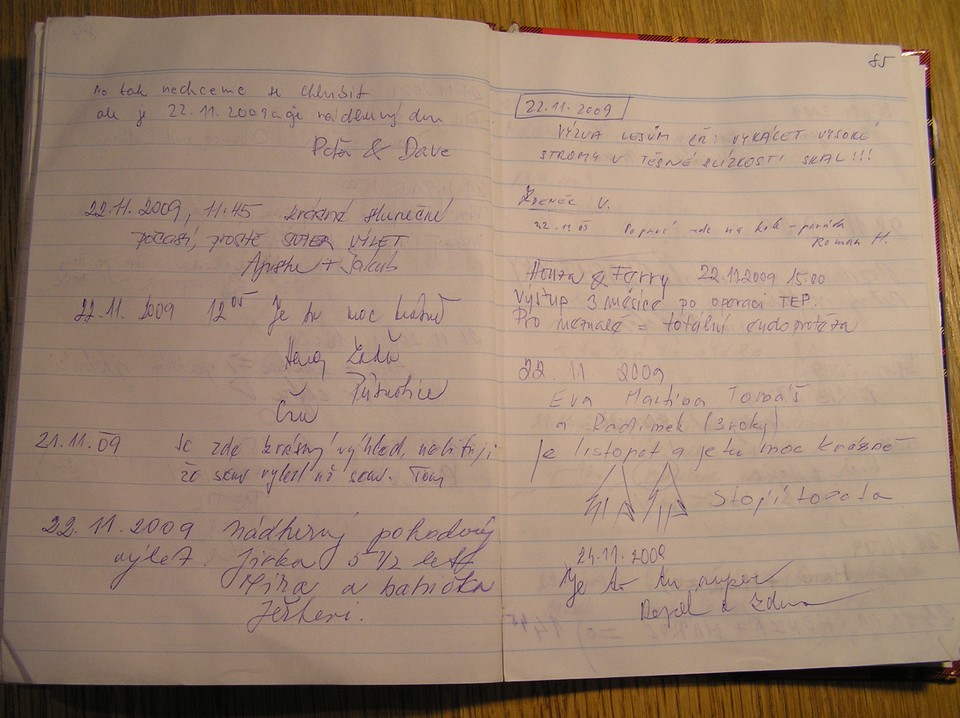 No tak nechceme se chlubit
ale je 22.11.2009 a je nádherný den
Peťa & Dave
22.11.2009, 11:45 krásné sluneční
počasí, prostě SUPER VÝLET
+ Jakub
22.11.2009 12 05 Je tu moc krásně
21.11.09 Je zde krásný výhled,
že sem vylezl až sem. Tom
22.11.2009 nádherný pohodový
výlet. Jirka 5 1/2 let
Míra a babička
85
22.11.2009
VÝZVA LESŮM ČR: VYKÁCET VYSOKÉ
STROMY V TĚSNÉ BLÍZKOSTI SKAL!!!
ZDENĚK V.
22.11.09 Poprvé zde na kole - paráda
Roman H.
Honza & Ferry 22.11.2009 15:00
Výstup 3 měsíce po operaci TEP.
Pro neznalé = totální endoprotéza
22. 11 2009
Eva Martina Tomáš
a Radimek (3 roky)
je listopat a je tu moc krásně
24.11.2009
Je to tu super